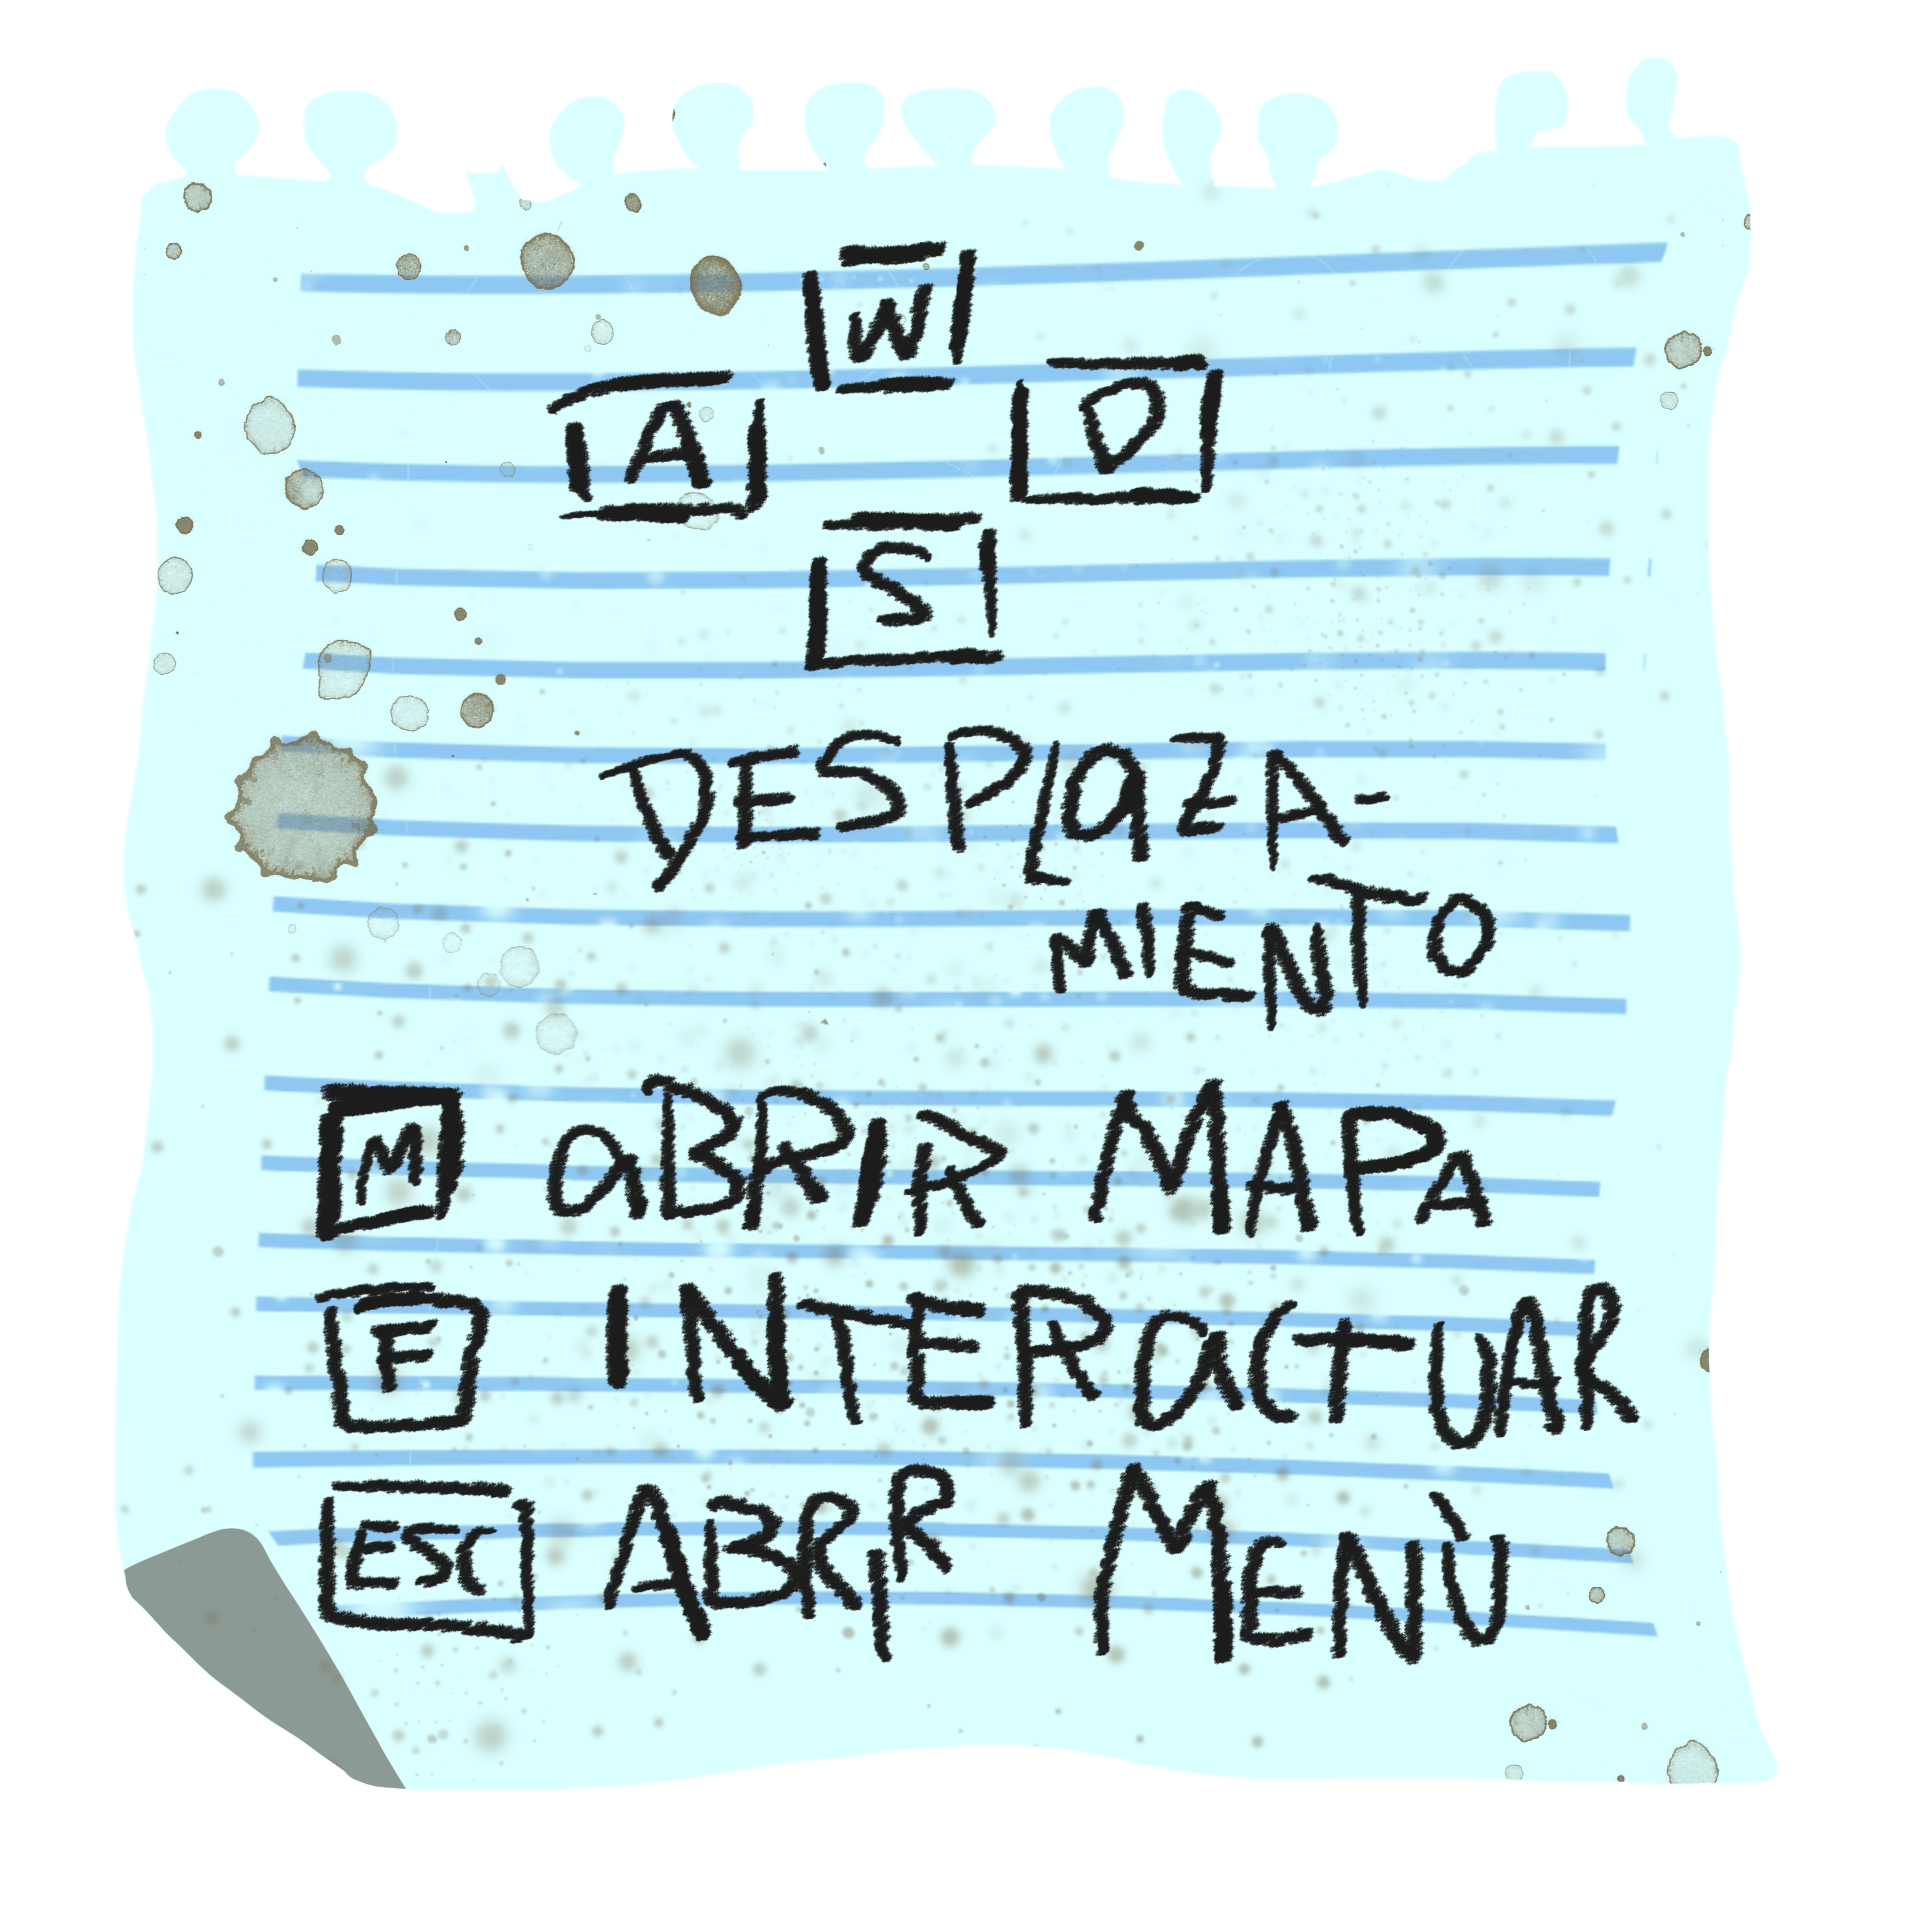 W
A D
S
DESPLaZA-
MIENTO
M aBRIR MAPA
F INTERaCTUAR
ESC ABRIR MENÙ